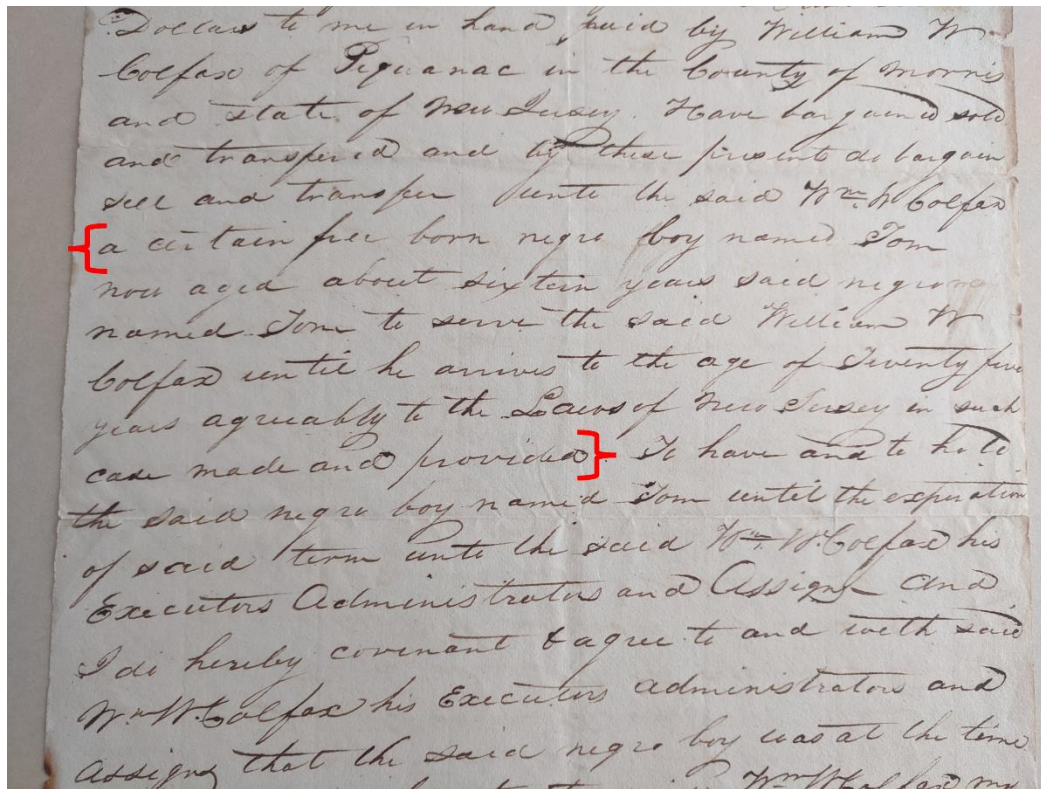 Dollars to me in hand paid by William W
Colfax of Pequanac in the County of Morris
and State of New Jersey. Have bargained sold
and transfered and by these presents do bargain
sell and transfer unto the said Wm W Colfax
a certain free born negro boy named Tom
now aged about sixteen years said negro
named Tom to serve the said William W
Colfax until he arrives to the age of Twenty five
years agreeably to the Laws of New Jersey in such
case made and provided. To have and to hold
the said negro boy named Tom until the expiration
of said term unto the said Wm. W. Colfax his
Executors Administrators and Assigns and
I do hereby covenant & agree to and with said
Wm W. Colfax his Executors administrators and
assigns that the said negro boy was at the time
Wm W Colfax my